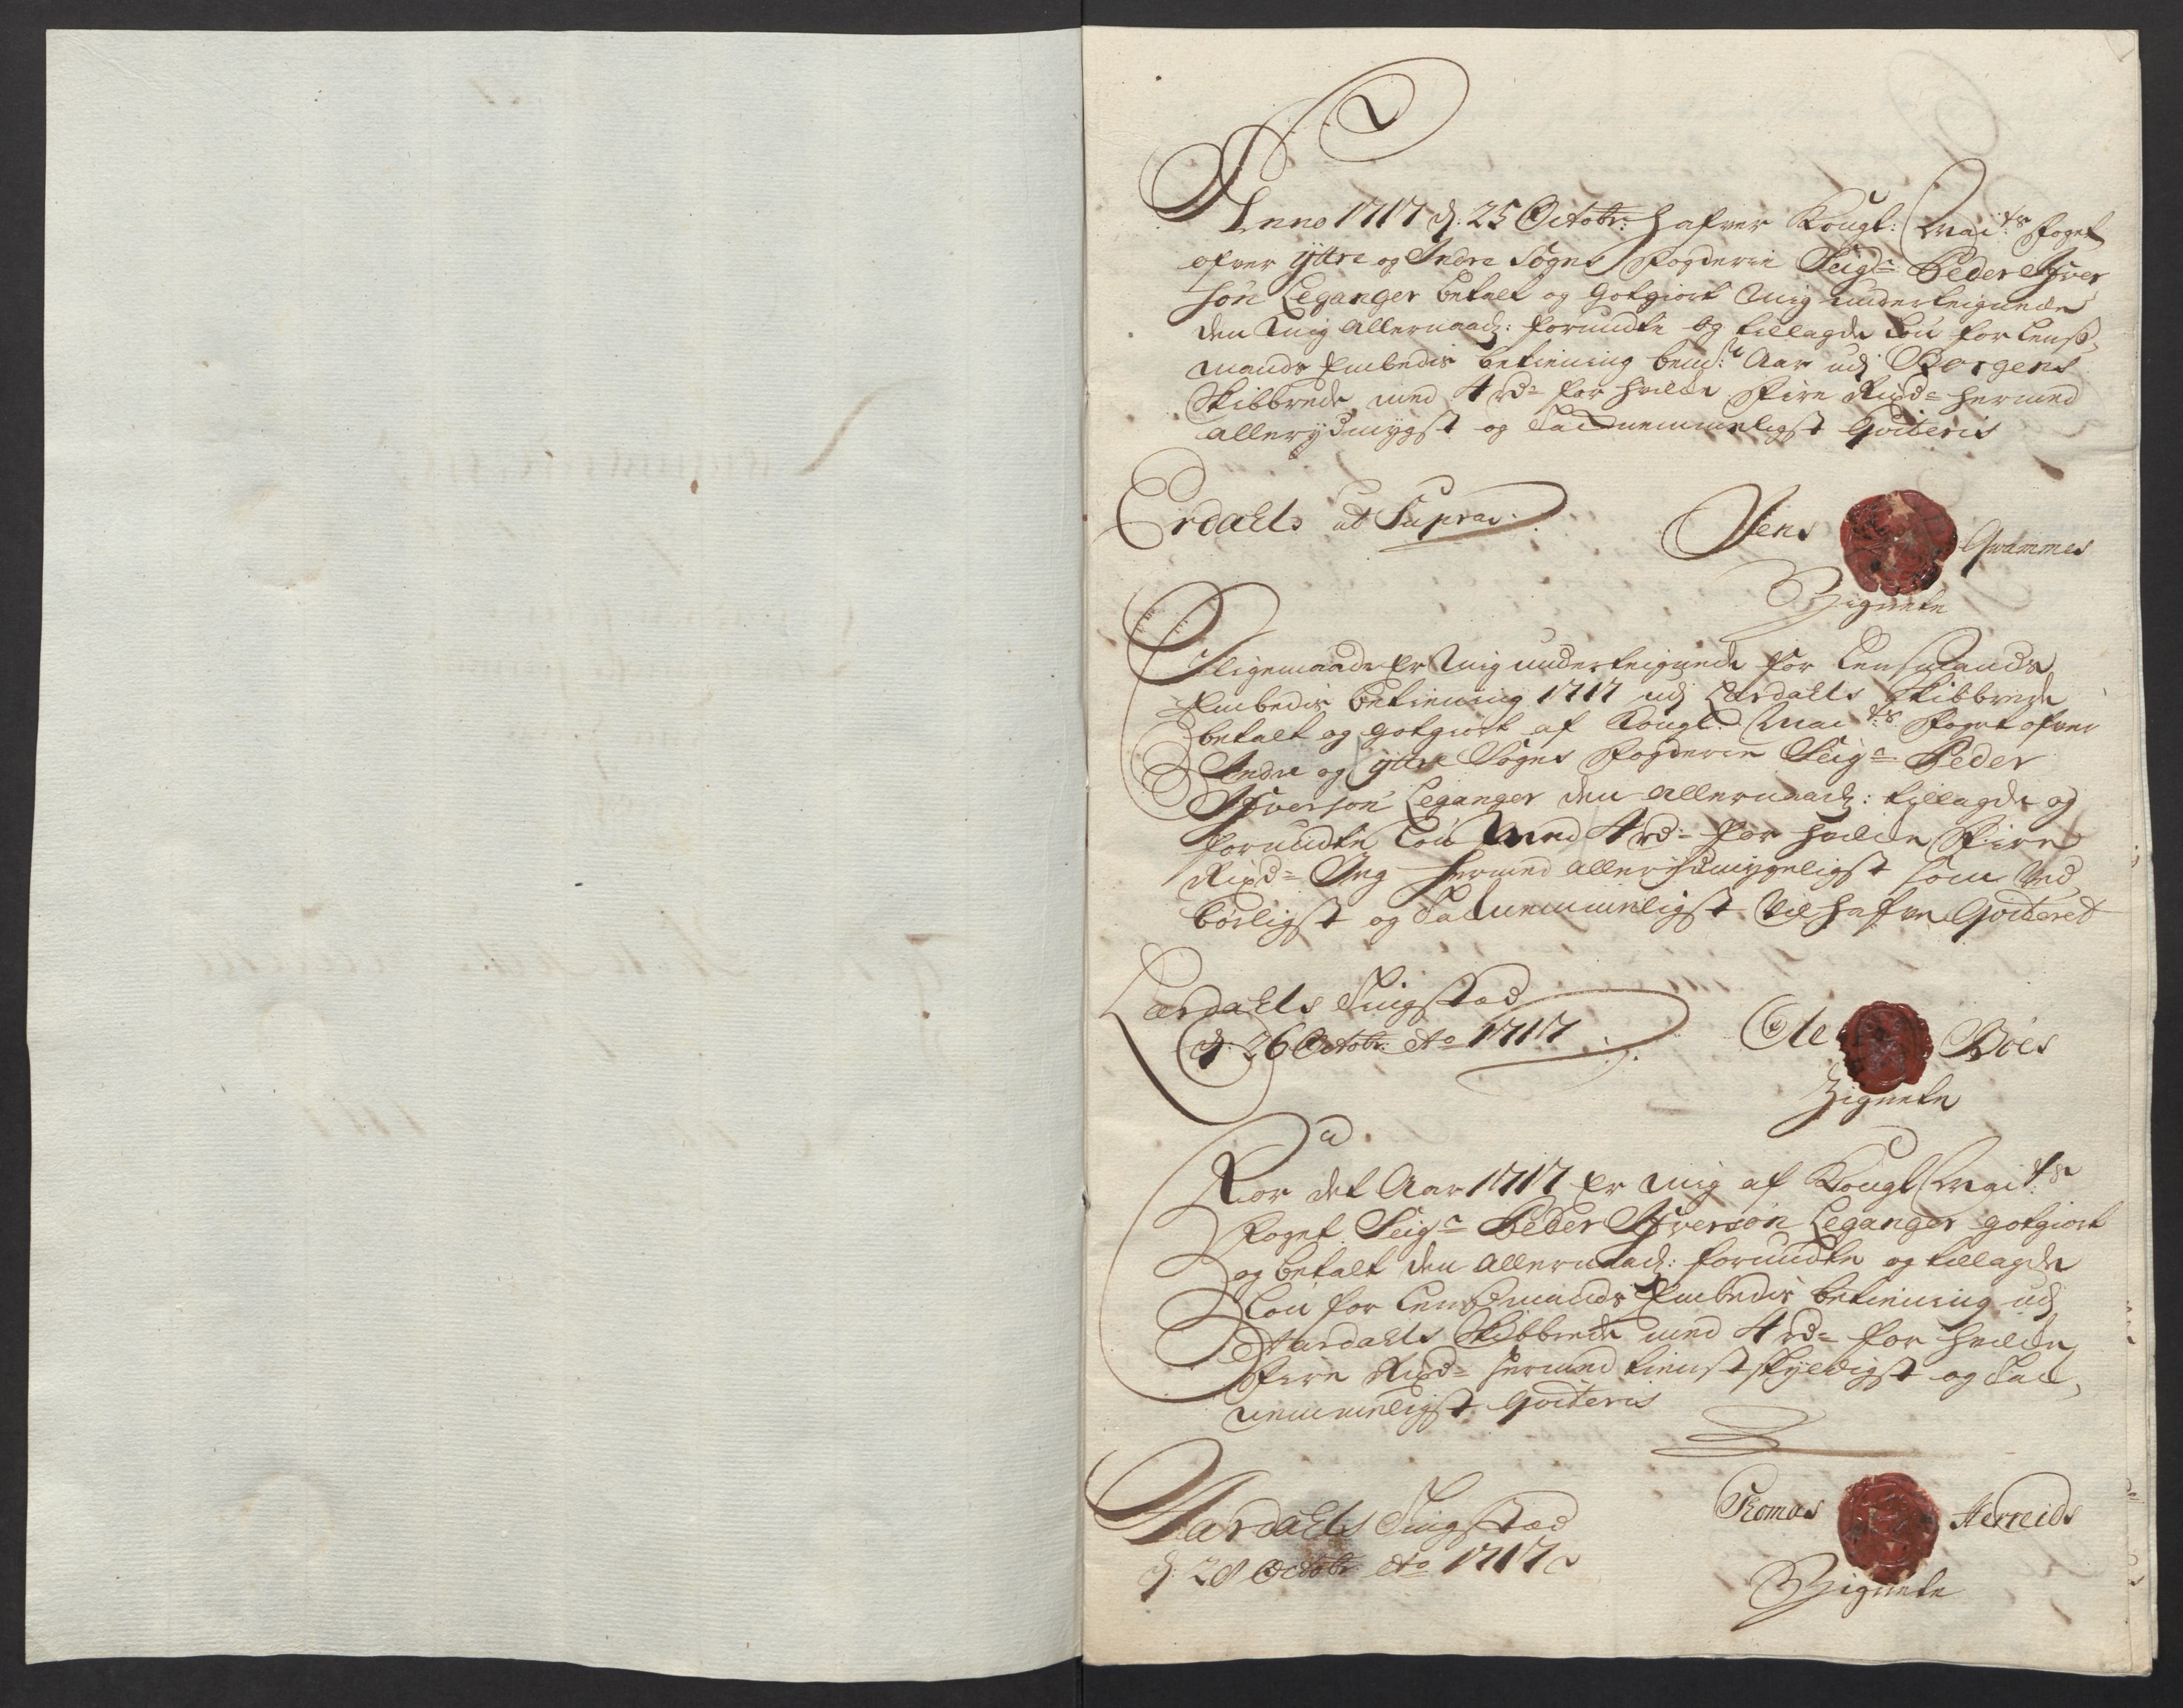 Anno 1717 d: 25 Octobr: hafver Kongl: Mai:ts Foget
ofver yttre og Indre Sogns Fogderie Seigr Peder Ifver
søn Leganger betalt og Gotgiort Mig underteignede
den Mig Allernaad: forundte og tillagde Løn for Lenß,
mands Embedis betiening bem:te Aar udj Borgens
Skibbrede, med 4 rd= for hvilke Fire Rixd= hermed
allerydmygst og Tacknemmeligst Qvitteris
Erdahls ut Supra:
Jens Qvammes
Zignete
Ligemaade Er Mig underteignede for Lensmands
Embedis betiening 1717 udj Lærdahls Skibbrede
betalt og gotgiort af Kongl: Mai:ts Foget ofver
Indre og yttre Sogns Fogderie Seigr Peder
Ifversøn Leganger den Allernaad: tillagde og
forundte Løn Med 4 rd= for hvilke Fire
Rixd= Jeg hermed allerydmygeligst som Ved,
børligst og Tacknemmeligst Vil hafve Qvitteret
Lærdahls Tingstad
d: 26 Octobr: Ao 1717
Ole Bøes
Zignete
For det Aar 1717 Er mig af Kongl Mai:ts
Foget Seigr Peder Ifversøn Leganger gotgiort
og betalt den Allernaad: forundte og tillagde
Løn for Lensmands Embedis betiening udj
Aardahls Skibbrede med 4 rd= for hvilke
Fire Rixd= hermed tienstskyldigst og Tack,
nemmeligst Qvitteris
Aardahls Tingstad
d: 28 Octobr: Ao 1717
Thomas Herreids
Zignete